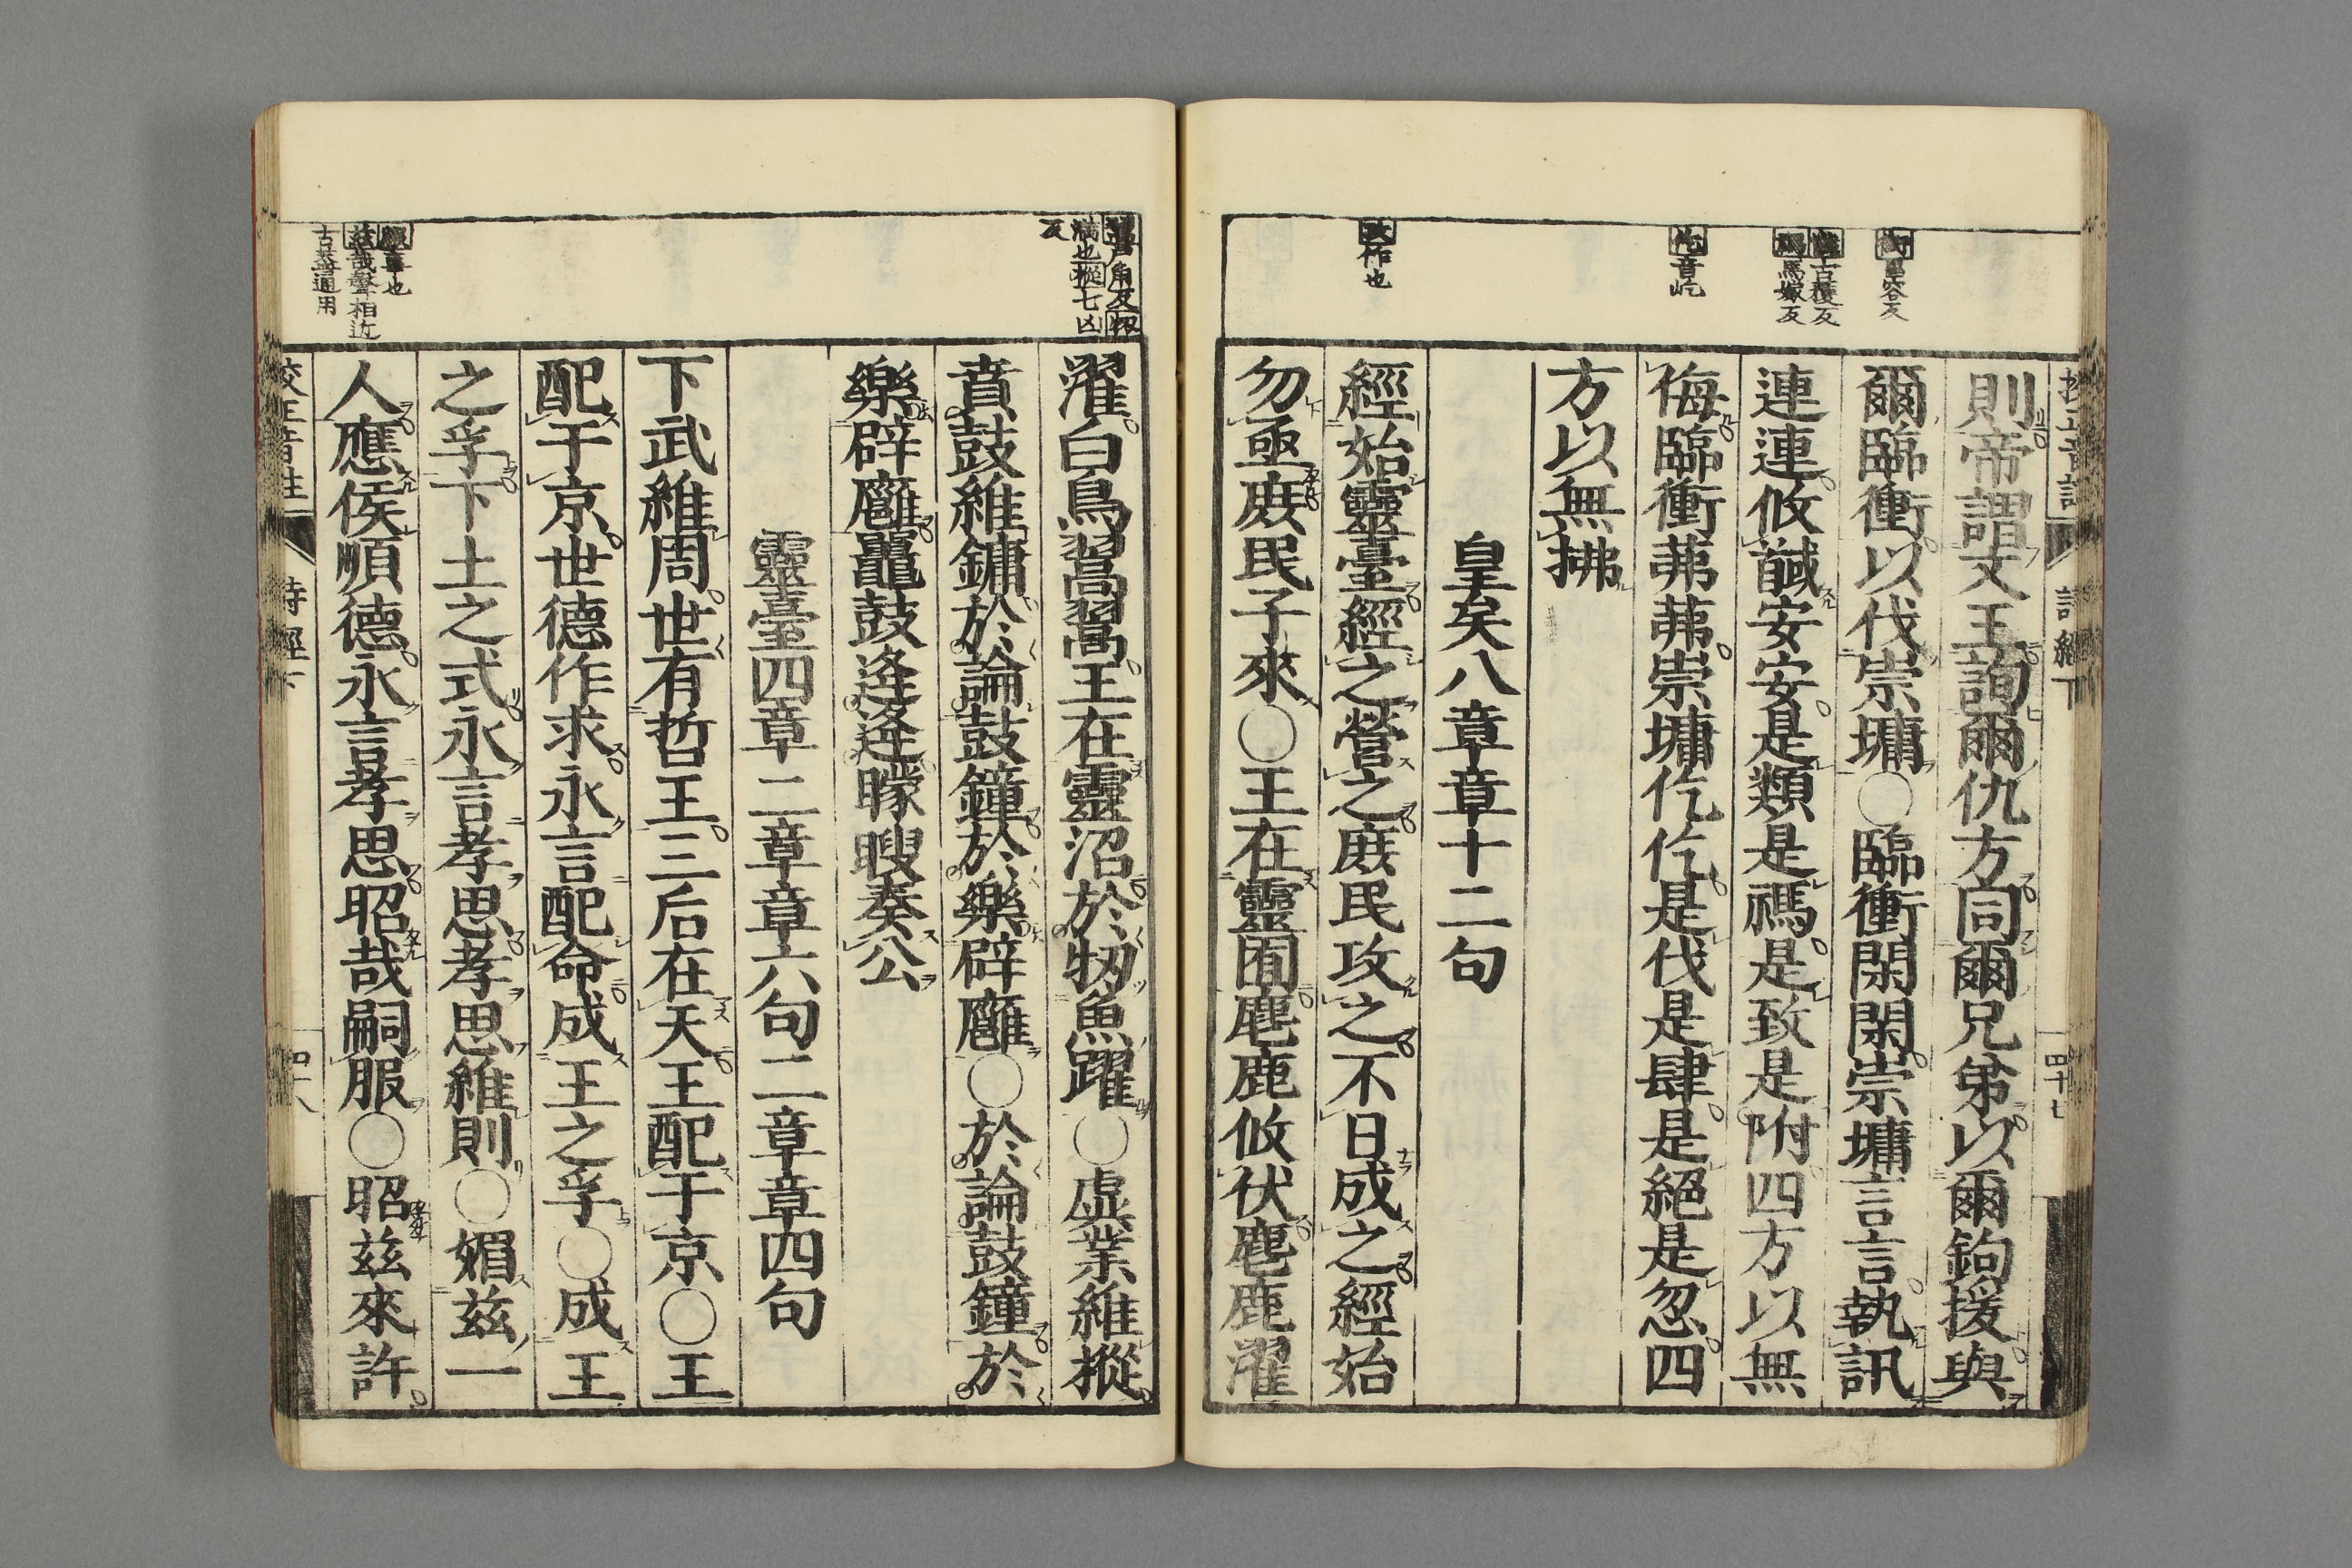 則帝謂文王詢爾仇方同爾兄弟以爾鉤援與
爾臨衝以伐崇墉○臨衝閑閑崇墉言言執訊
連連攸馘安安是類是禡是致是附四方以無
侮臨衝茀茀崇墉仡仡是伐是肆是絕是忽四
方以無拂
皇矣八章章十二句
經始靈臺經之營之庶民攻之不日成之經始
勿亟庶民子來○王在靈囿麀鹿攸伏麀鹿濯
濯白鳥翯翯王在靈沼於牣魚躍○虛業維樅
賁鼓維鏞於論鼓鐘於樂辟廱○於論鼓鐘於
樂辟廱鼉鼓逢逢矇瞍奏公
靈臺四章二章章六句二章章四句
下武維周世有哲王三后在天王配于京○王
配于京世德作求永言配命成王之孚○成王
之孚下土之式永言孝思孝思維則○媚茲一
人應侯順德永言孝思昭哉嗣服○昭茲來許
詩經下
四十七
音屹
作也
古獲反
馬嫁反
滿也樅七凶
反
茲哉聲相近
古蓋通用